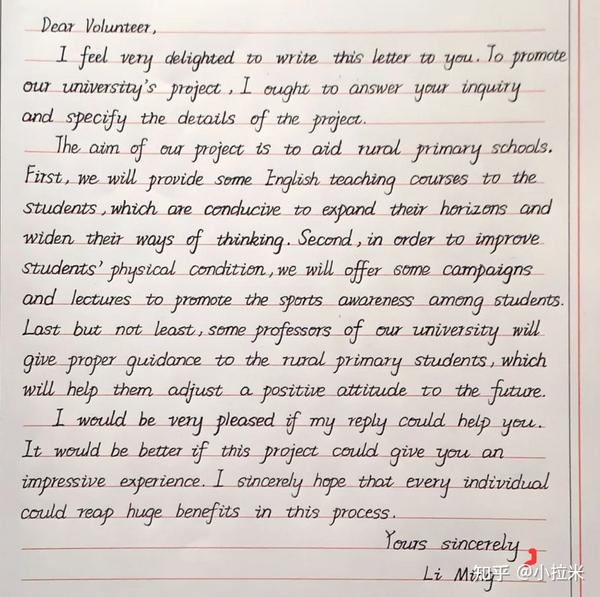 Dear Volunteer,
I feel very delighted to write this letter to you. To promote
our university's project, I ought to answer your inquiry
and specify the details of the project.
The aim of our project is to aid rural primary schools.
First, we will provide some English teaching courses to the
students, which are conducive to expand their horizons and
widen their ways of thinking. Second, in order to improve
students' physical condition, we will offer some campaigns
and lectures to promote the sports awareness among students.
Last but not least, some professors of our university will
give proper guidance to the rural primary students, which
will help them adjust a positive attitude to the future.
I would be very pleased if my reply could help you.
It would be better if this project could give you an
impressive experience. I sincerely hope that every individual
could reap huge benefits in this process.
Yours sincerely,
Li Ming
知乎 @小拉米